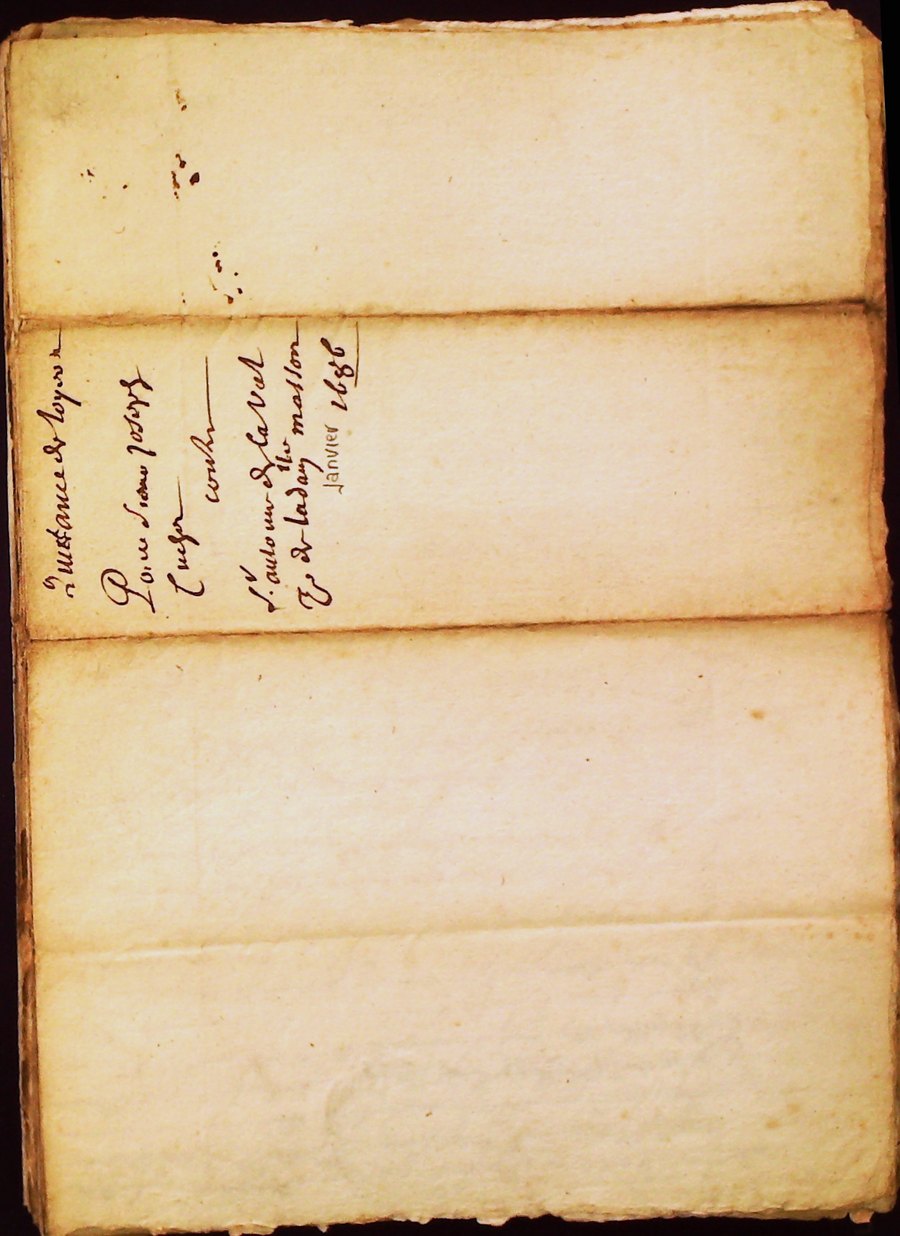 quittance de loyer
Pour Sieur Joseph
contre
Sr antoine de laval
Et de lad masson
Janvier 1686